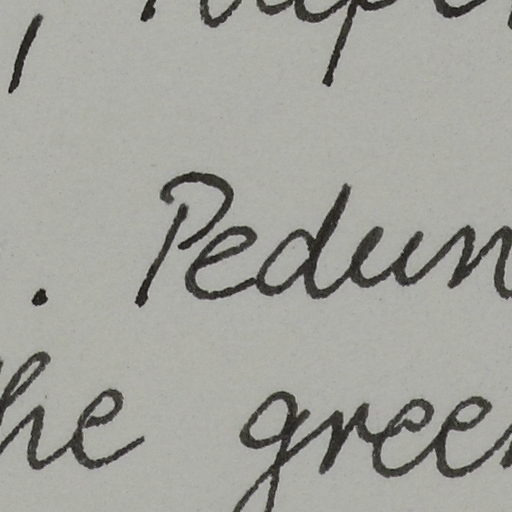 . Pedun
he gree